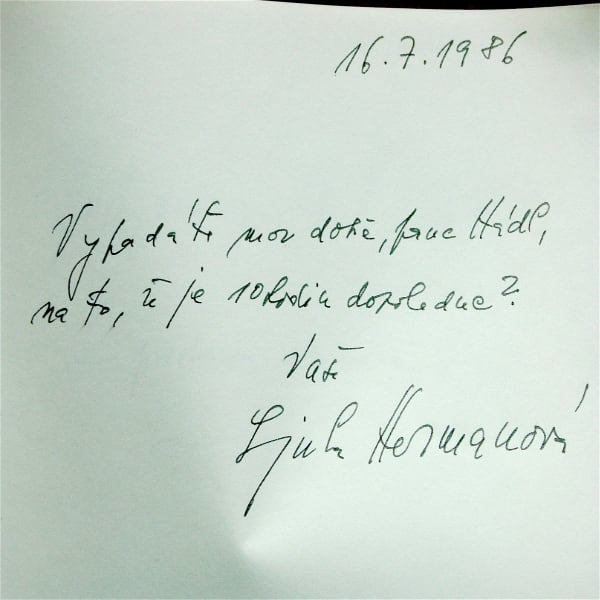 16.7.1986
Vypadáte moc dobře, pane Hádl,
na to, že je 10 hodin dopoledne?
Vaše
Ljuba Hermanová